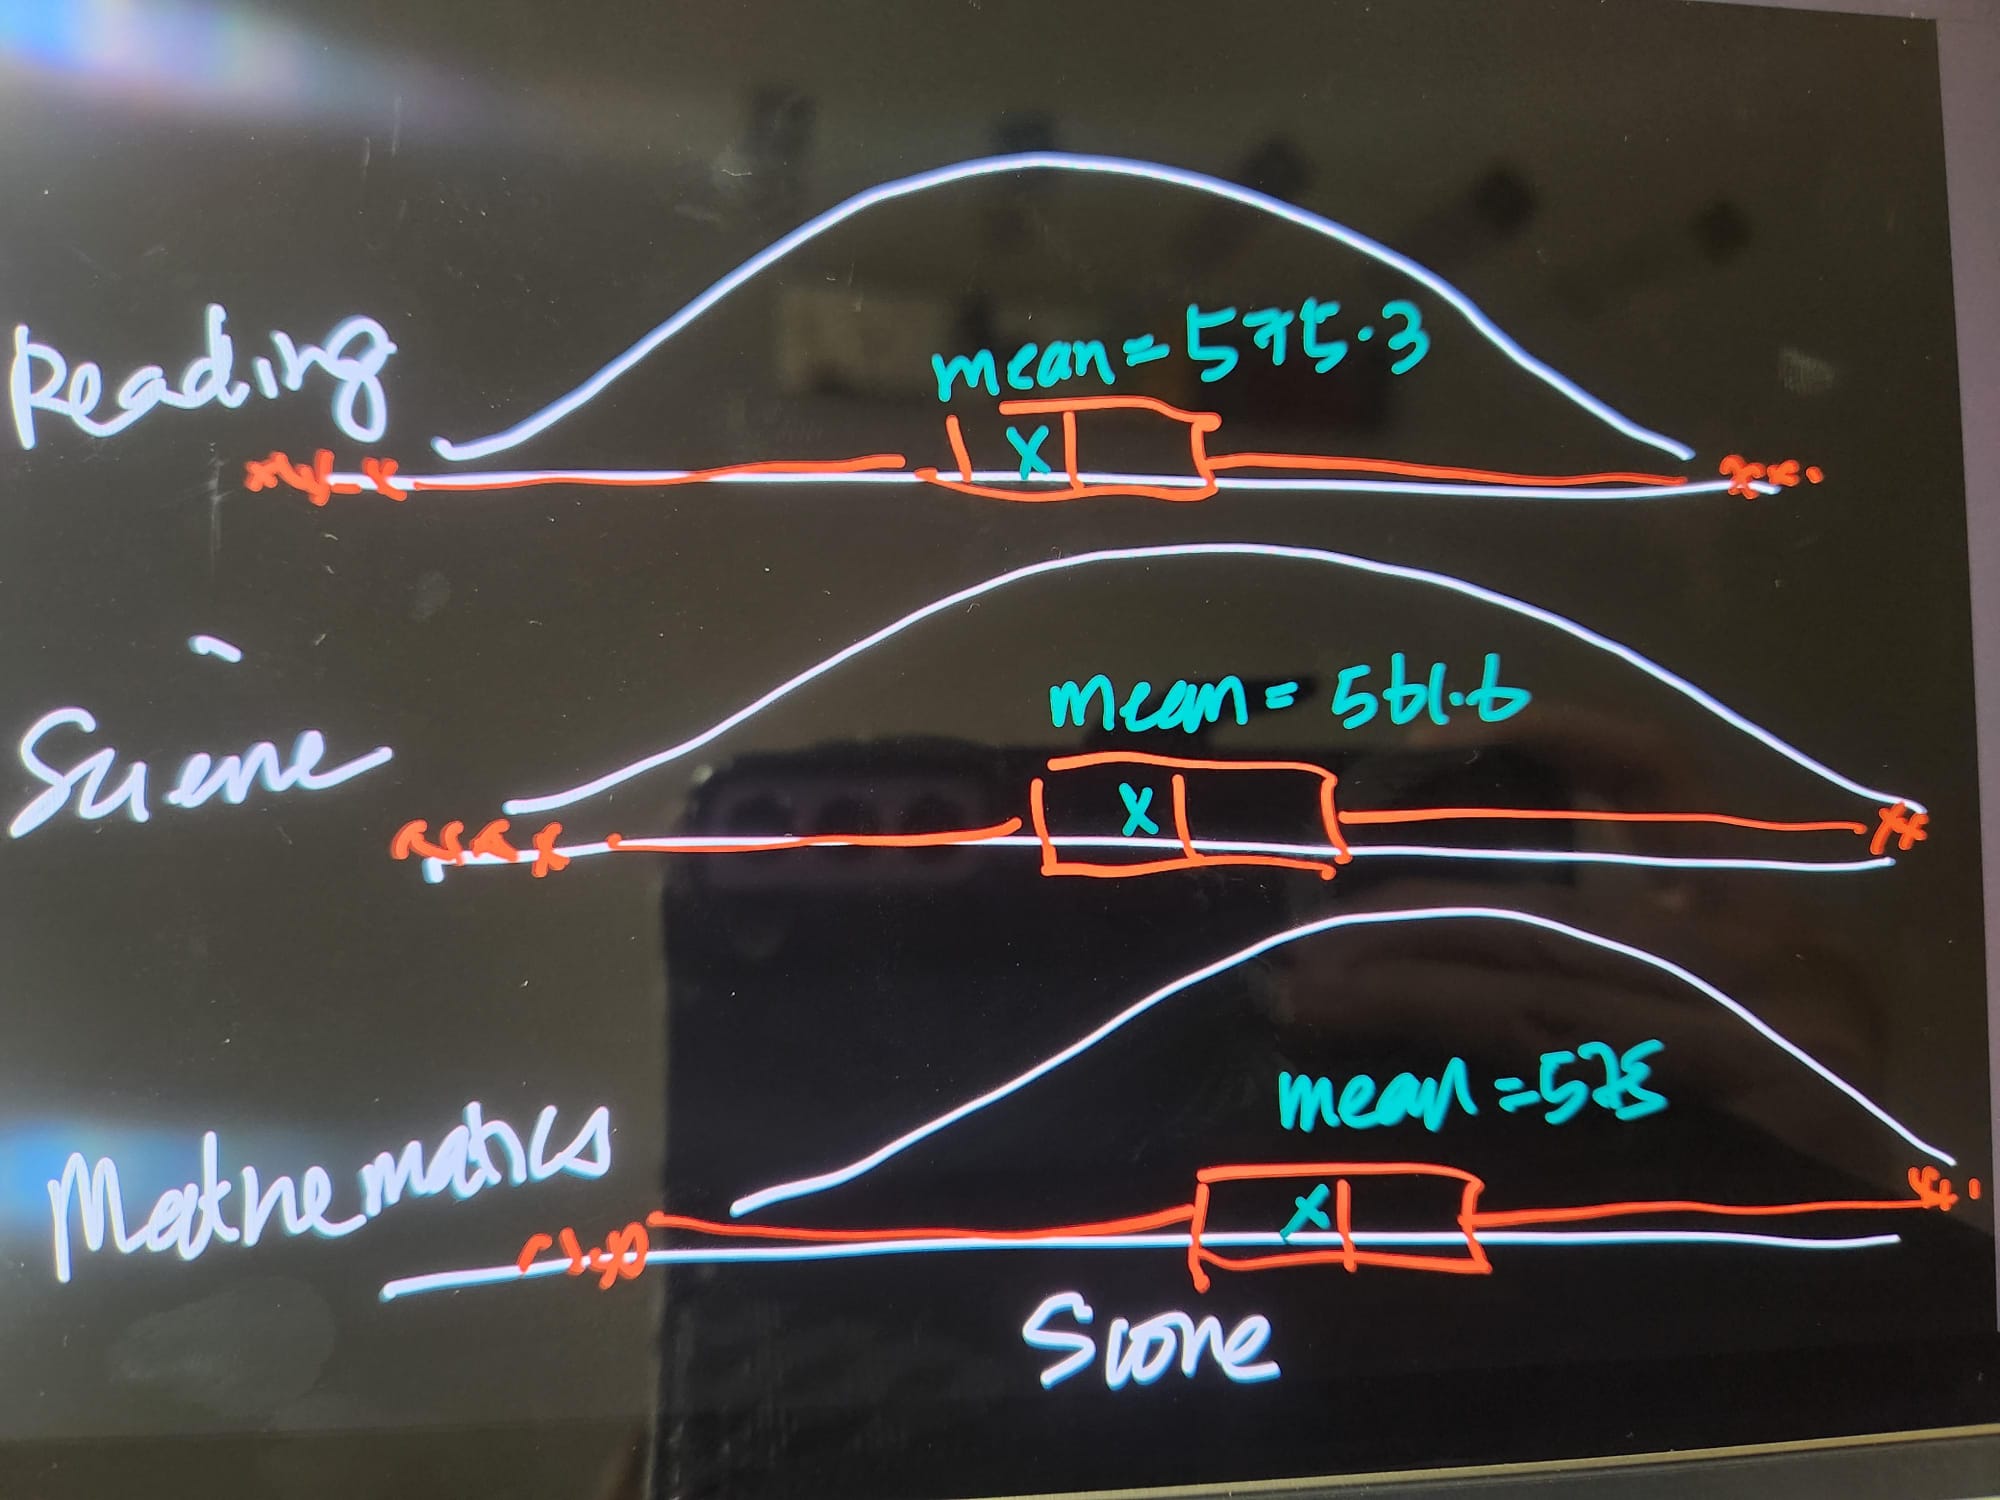 Reading
mean = 575.3
Science
mean = 561.6
Mathematics
mean = 575
Score